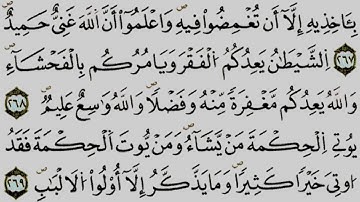 بِـَٔاخِذِيهِ إِلَّآ أَن تُغْمِضُوا۟ فِيهِ وَٱعْلَمُوٓا۟ أَنَّ ٱللَّهَ غَنِىٌّ حَمِيدٌ
٢٦٧ ٱلشَّيْطَٰنُ يَعِدُكُمُ ٱلْفَقْرَ وَيَأْمُرُكُم بِٱلْفَحْشَآءِ
وَٱللَّهُ يَعِدُكُم مَّغْفِرَةً مِّنْهُ وَفَضْلًا وَٱللَّهُ وَٰسِعٌ عَلِيمٌ ٢٦٨
يُؤْتِى ٱلْحِكْمَةَ مَن يَشَآءُ وَمَن يُؤْتَ ٱلْحِكْمَةَ فَقَدْ
أُوتِىَ خَيْرًا كَثِيرًا وَمَا يَذَّكَّرُ إِلَّآ أُو۟لُوا۟ ٱلْأَلْبَٰبِ ٢٦٩